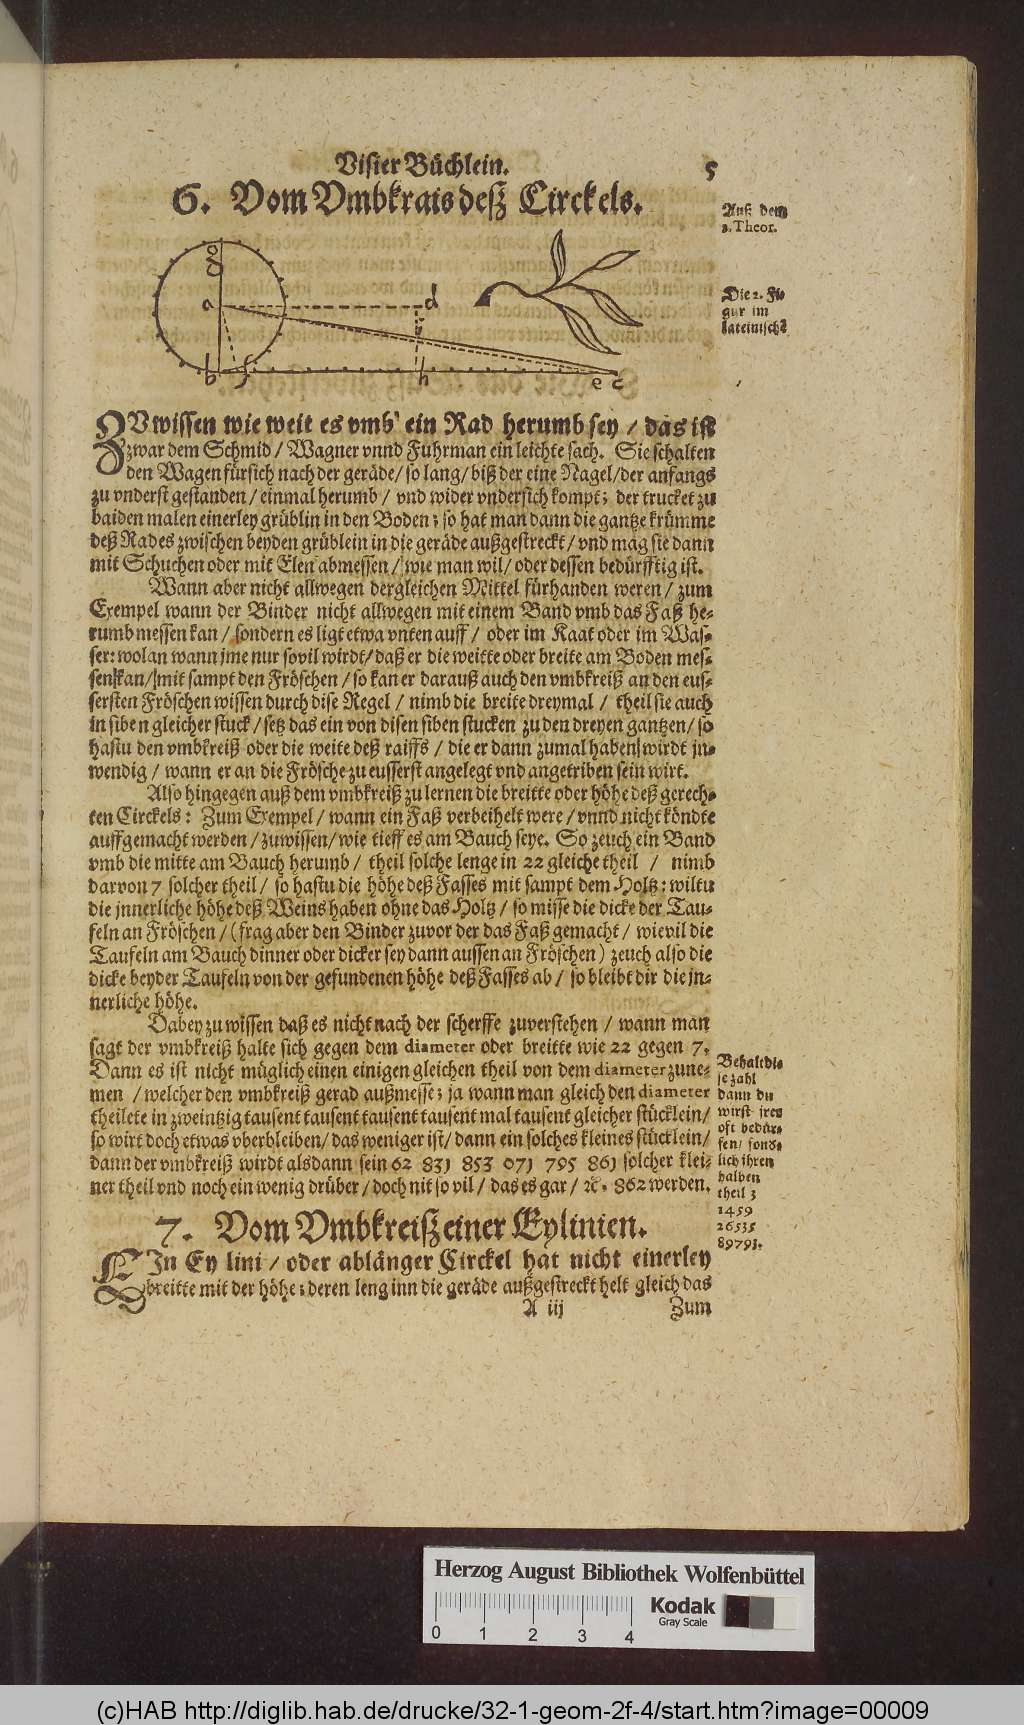 Visier Büchlein. 5
6. Vom Vmbkrais deß Circkels.
Auß dem
2. Theor.
Die 2. Fi-
gur im
lateinisch?
a
d
i
b
f
h
e c
ZVwissen wie weit es vmb ein Rad herumb sey / das ist
zwar dem Schmid / Wagner vnnd Fuhrman ein leichte sach. Sie schalten
den Wagen fürsich nach der geräde / so lang / biß der eine Nagel / der anfangs
zu vnderst gestanden / einmal herumb / vnd wider vndersich kompt; der trucket zu
baiden malen einerley grüblin in den Boden; so hat man dann die gantze krümme
deß Rades zwischen beyden grüblein in die geräde außgestreckt / vnd mag sie dann
mit Schuchen oder mit Elen abmessen / wie man wil / oder dessen bedürfftig ist.
Wann aber nicht allwegen dergleichen Mittel fürhanden weren / zum
Exempel wann der Binder nicht allwegen mit einem Band vmb das Faß he-
rumb messen kan / sondern es ligt etwa vnten auff / oder im Kaat oder im Was-
ser: wolan wann jme nur sovil wirdt / daß er die weitte oder breite am Boden mes-
sen kan / mit sampt den Fröschen / so kan er darauß auch den vmbkreiß an den eus-
sersten Fröschen wissen durch dise Regel / nimb die breite dreymal / theil sie auch
in siben gleicher stuck / setz das ein von disen siben stucken zu den dreyen gantzen / so
hastu den vmbkreiß oder die weite deß raiffs / die er dann zumal haben wirdt jn-
wendig / wann er an die Frösche zu eusserst angelegt vnd angetriben sein wirt.
Also hingegen auß dem vmbkreiß zu lernen die breitte oder höhe deß gerech-
ten Circkels: Zum Exempel / wann ein Faß verbeihelt were / vnnd nicht köndte
auffgemacht werden / zuwissen / wie tieff es am Bauch seye. So zeuch ein Band
vmb die mitte am Bauch herumb / theil solche lenge in 22 gleiche theil / nimb
darvon 7 solcher theil / so hastu die höhe deß Fasses mit sampt dem Holtz: wiltu
die jnnerliche höhe deß Weins haben ohne das Holtz / so misse die dicke der Tau-
feln an Fröschen / (frag aber den Binder zuvor der das Faß gemacht / wievil die
Taufeln am Bauch dinner oder dicker sey dann aussen an Fröschen) zeuch also die
dicke beyder Taufeln von der gefundenen höhe deß Fasses ab / so bleibt dir die jn-
nerliche höhe.
Dabey zu wissen daß es nicht nach der scherffe zuverstehen / wann man
sagt der vmbkreiß halte sich gegen dem diameter oder breitte wie 22 gegen 7.
Dann es ist nicht müglich einen einigen gleichen theil von dem diameter zune-
men / welcher den vmbkreiß gerad außmesse; ja wann man gleich den diameter
theilete in zweintzig tausent tausent tausent tausent mal tausent gleicher stücklein /
so wirt doch etwas vberbleiben / das weniger ist / dann ein solches kleines stücklein /
dann der vmbkreiß wirdt alsdann sein 62 831 853 071 795 861 solcher klei-
ner theil vnd noch ein wenig drüber / doch nit so vil / das es gar / ꝛc. 862 werden.
Behalt di-
se zahl
dann du
wirst jres
oft bedür-
fen / sond-
lich ihren
halben
theil 3
1459
26535
89793.
7. Vom Vmbkreiß einer Eylinien.
EIn Ey lini / oder ablänger Circkel hat nicht einerley
breitte mit der höhe; deren leng inn die geräde außgestreckt helt gleich das
A iij Zum
Herzog August Bibliothek Wolfenbüttel
0 1 2 3 4
Kodak
Gray Scale
(c)HAB http://diglib.hab.de/drucke/32-1-geom-2f-4/start.htm?image=00009